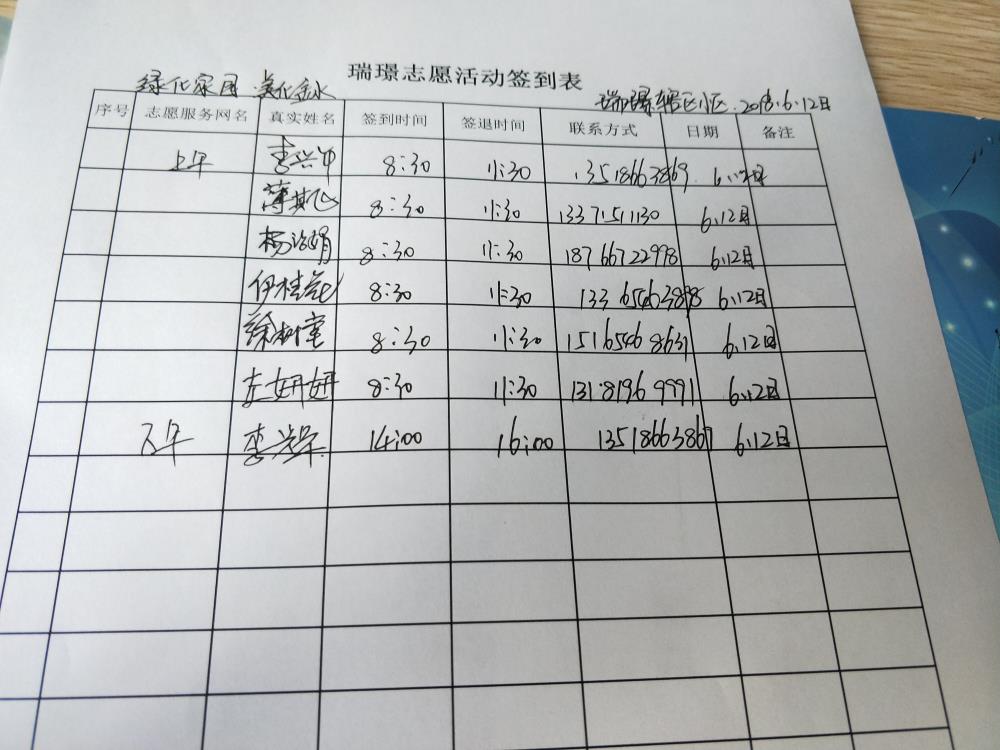 瑞璟志愿活动签到表
绿化家园 美化金水
瑞璟辖区小区 2018.6.12日
序号 志愿服务网名 真实姓名 签到时间 签退时间 联系方式 日期 备注
上午 8:30 11:30 13518663869 6.12日
薄其飞 8:30 11:30 13371511130 6.12日
8:30 11:30 18766722998 6.12日
伊桂花 8:30 11:30 6.12日
徐树堂 8:30 11:30 15165468631 6.12日
左妍妍 8:30 11:30 13181969991 6.12日
下午 14:00 16:00 13518663867 6.12日